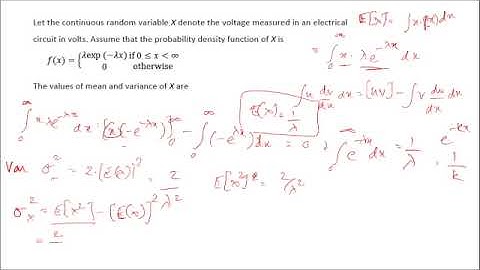 Let the continuous random variable X denote the voltage measured in an electrical
circuit in volts. Assume that the probability density function of X is
f(x) = {λexp (−λx) if 0 ≤ x < ∞
0 otherwise
The values of mean and variance of X are
E[X] = ∫x.f(x)dx
= ∫₀^∞ x. λe^(-λx) dx
∫u dv/dx dx = [uv] - ∫v du/dx dx
E(x) = 1/λ
∫₀^∞ x λe^(-λx) dx = [(x)(-e^(-λx))]₀^∞ - ∫₀^∞ (-e^(-λx))dx = 0 + ∫₀^∞ e^(-λx) dx = 1/λ
e^(-kx)
1/k
Var σ² = 2.(E(x))² = 2/λ²
E[x²] = 2/λ²
σₓ² = E[x²] - [E(x)]²
= 2